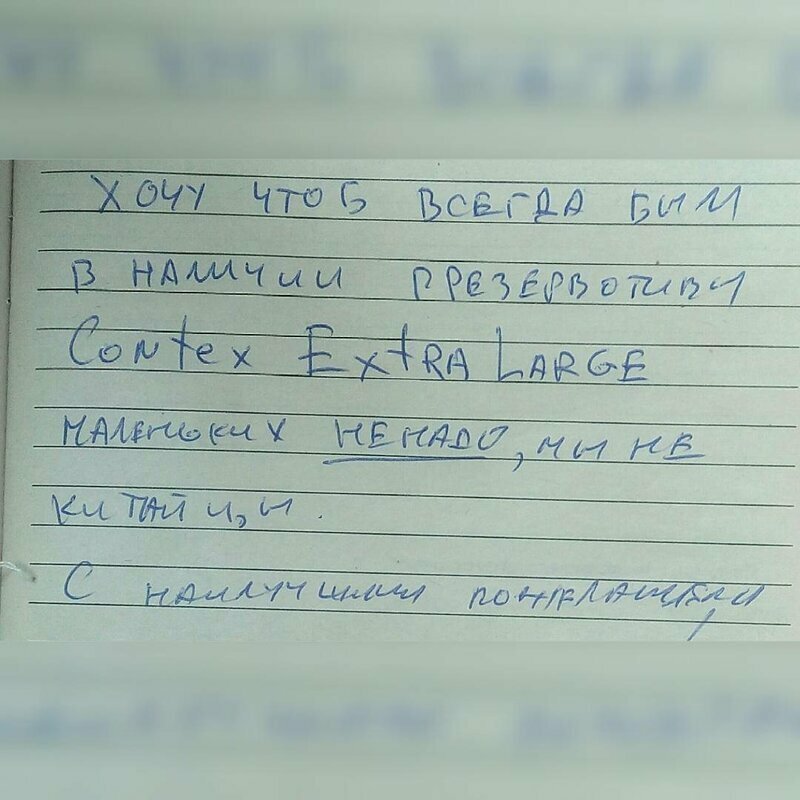 ХОЧУ ЧТОБ ВСЕГДА БЫЛ
В НАЛИЧИИ ПРЕЗЕРВОТИВЫ
Contex ExtRA LARGE
МАЛЕНЬКИХ НЕНАДО, МЫ НЕ
КИТАЙЦЫ.
С НАИЛУЧШИМИ ПОЖЕЛАНИЯМИ